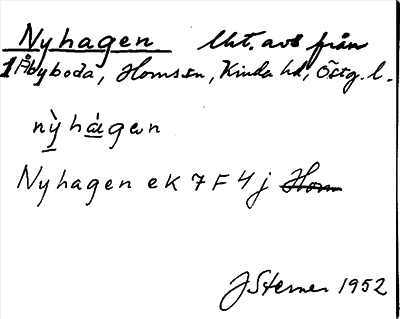 Nyhagen Utt. avs från
1 Åbyboda, Horns sn, Kinda hd, Östg. l.
nỳhágen
Nyhagen ek 7 F 4 j Horn
J Sterner 1952